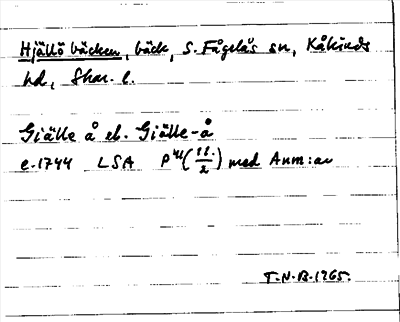 Hjällö bäcken, bäck, S. Fågelås sn, Kåkinds
hd, Skar. l.
Giälle å el. Giälle-å
e. 1744 LSA P 41 (11/2) med Anm:ar
T.N.B. 1265.